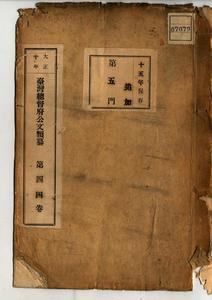 07072
十五年保存
追加
第五門
大正
十年
臺灣總督府公文類纂 第四四卷